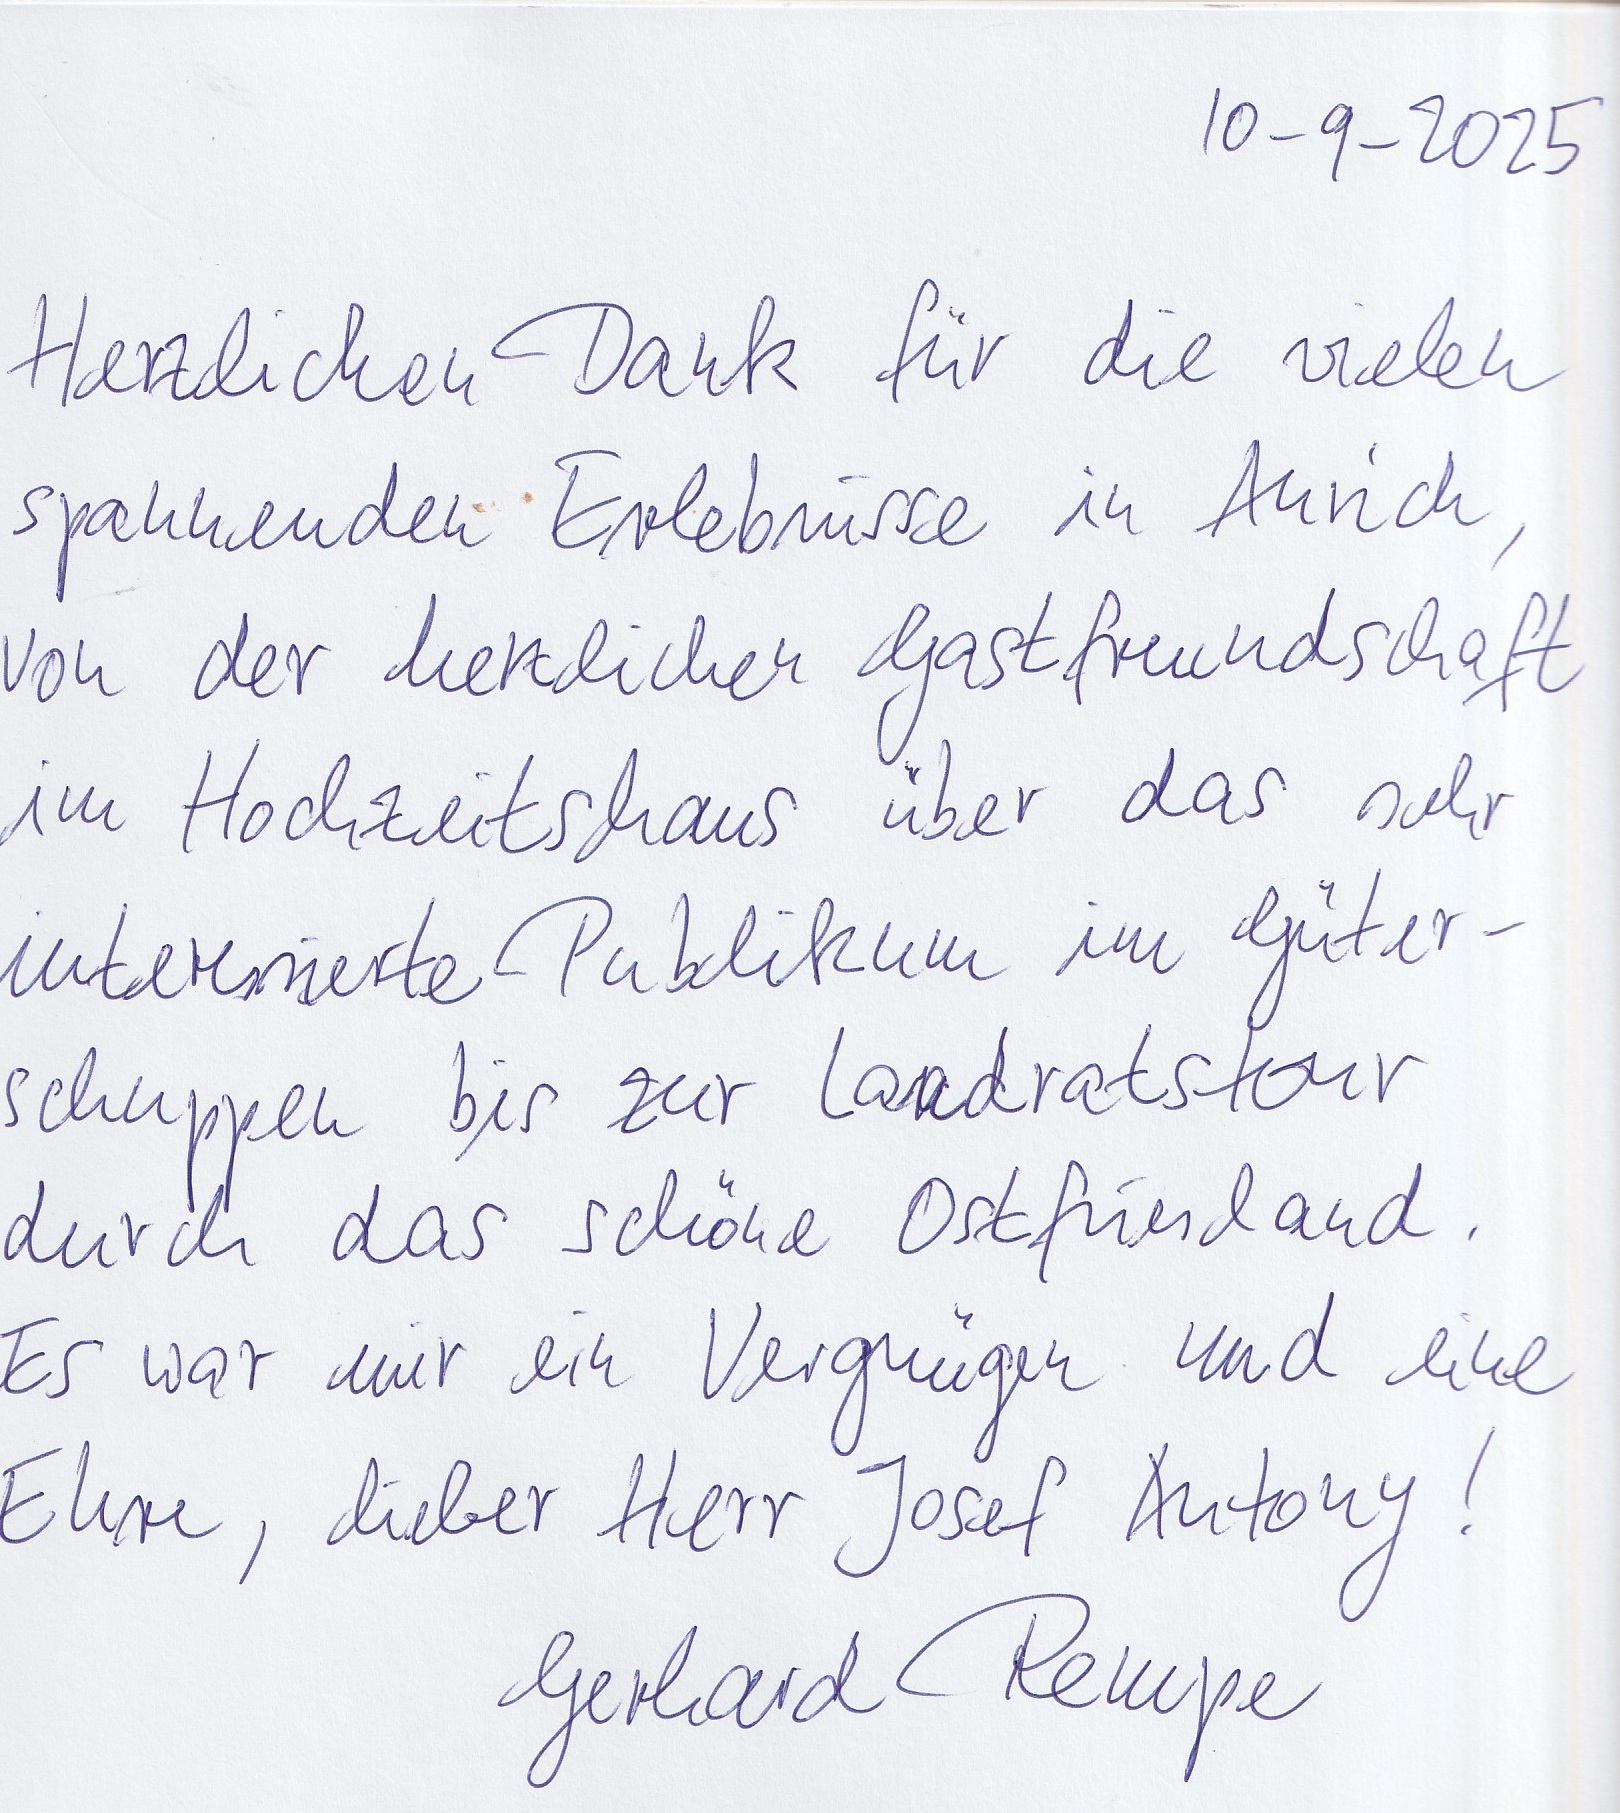 10-9-2025
Herzlichen Dank für die vielen
spannenden Erlebnisse in Aurich,
von der herzlichen Gastfreundschaft
im Hochzeitshaus über das sehr
interessierte Publikum im Güter-
schuppen bis zur Landratstour
durch das schöne Ostfriesland.
Es war mir ein Vergnügen und eine
Ehre, lieber Herr Josef Antony!
Gerhard Rempe